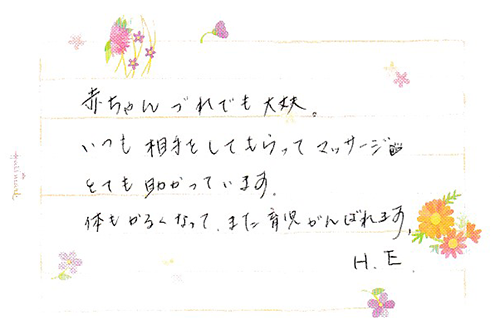 赤ちゃんづれでも大丈夫。
いつも相手をしてもらってマッサージ
とても助かっています。
体もかるくなって、また育児がんばれます。
H.E.
Hallmark